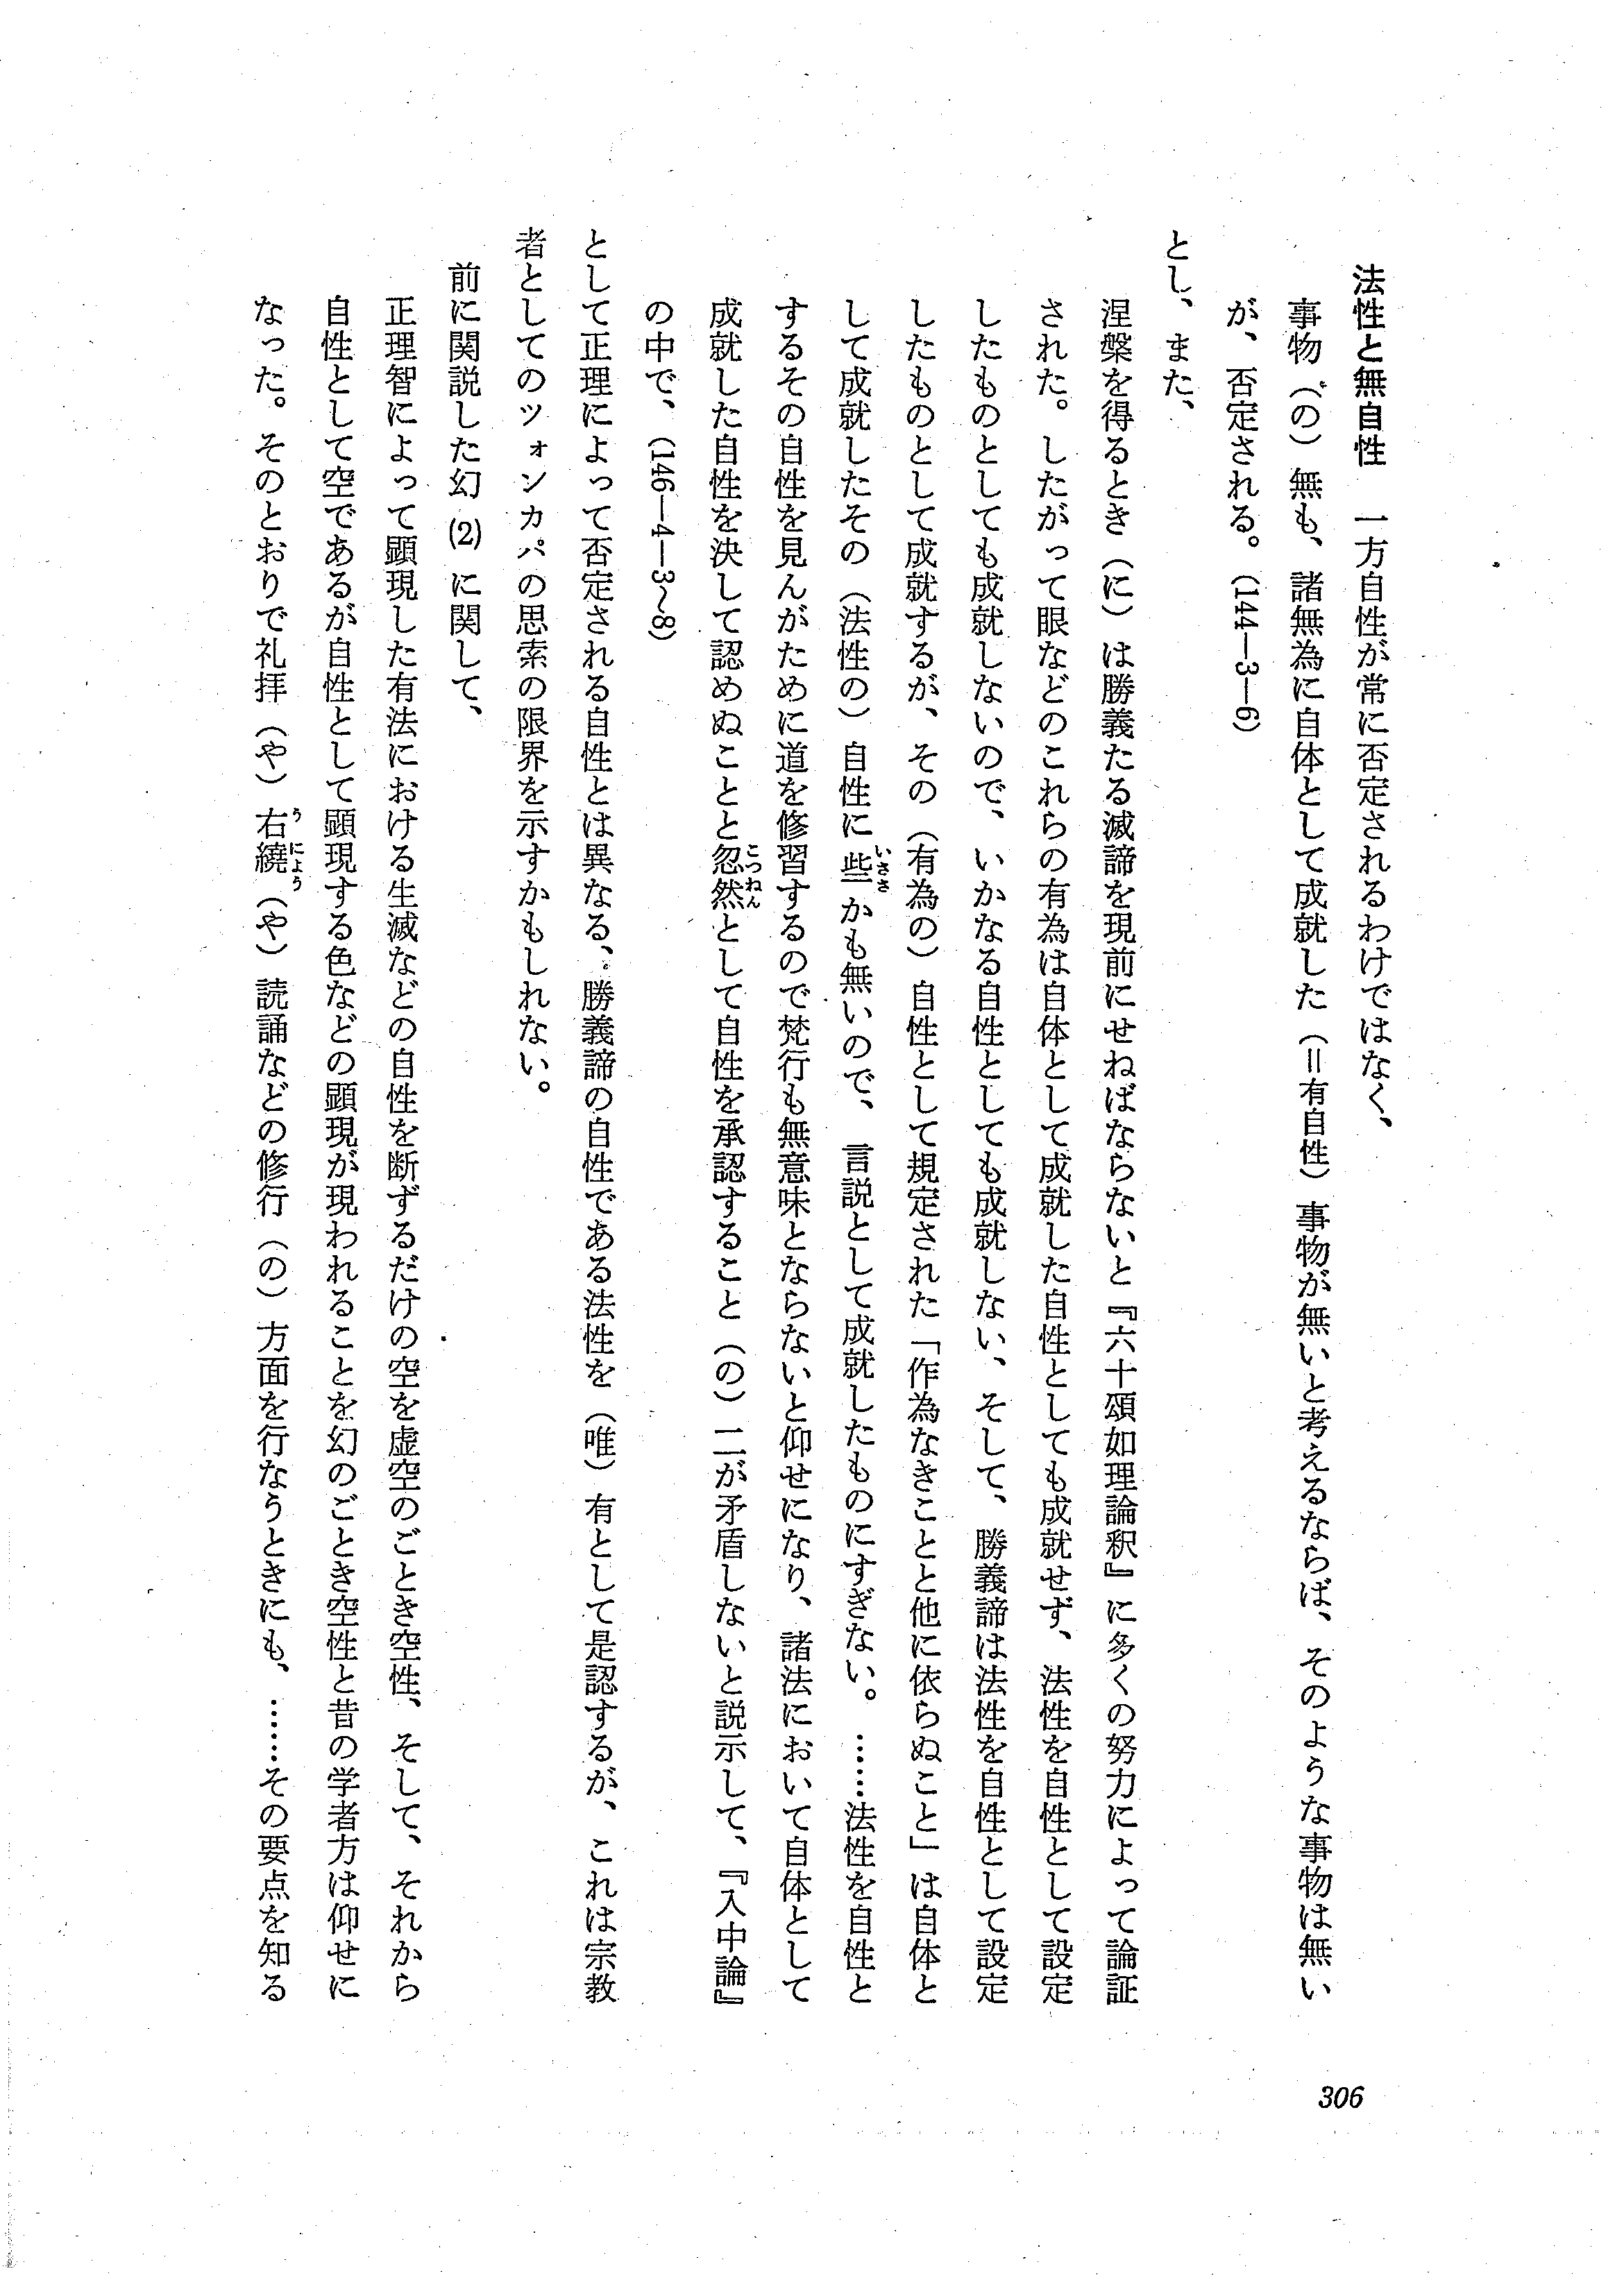 法性と無自性　一方自性が常に否定されるわけではなく、
事物（の）無も、諸無為に自体として成就した（＝有自性）事物が無いと考えるならば、そのような事物は無い
が、否定される。（144―3―6）
とし、また、
涅槃を得るとき（に）は勝義たる滅諦を現前にせねばならないと『六十頌如理論釈』に多くの努力によって論証
された。したがって眼などのこれらの有為は自体として成就した自性としても成就せず、法性を自性として設定
したものとしても成就しないので、いかなる自性としても成就しない、そして、勝義諦は法性を自性として設定
したものとして成就するが、その（有為の）自性として規定された「作為なきことと他に依らぬこと」は自体と
して成就したその（法性の）自性に些かも無いので、言説として成就したものにすぎない。……法性を自性と
するその自性を見んがために道を修習するので梵行も無意味とならないと仰せになり、諸法において自体として
成就した自性を決して認めぬことと忽然として自性を承認すること（の）二が矛盾しないと説示して、『入中論』
の中で、（146―4―3～8）
として正理によって否定される自性とは異なる、勝義諦の自性である法性を（唯）有として是認するが、これは宗教
者としてのツォンカパの思索の限界を示すかもしれない。
前に関説した幻(2)に関して、
正理智によって顕現した有法における生滅などの自性を断ずるだけの空を虚空のごとき空性、そして、それから
自性として空であるが自性として顕現する色などの顕現が現われることを幻のごとき空性と昔の学者方は仰せに
なった。そのとおりで礼拝（や）右繞（や）読誦などの修行（の）方面を行なうときにも、……その要点を知る
306